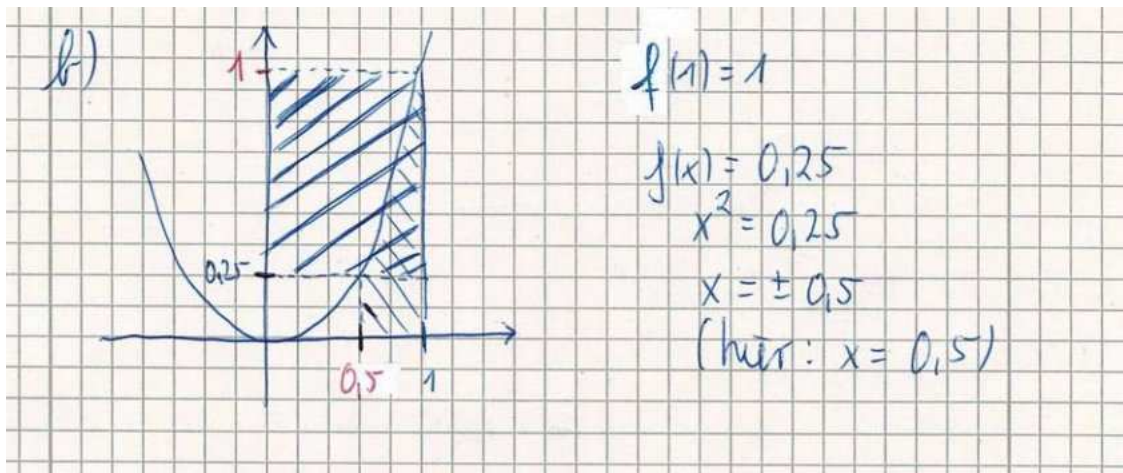 b)
1
0,25
0,5
1
f(1) = 1
f(x) = 0,25
x² = 0,25
x = ± 0,5
(hier: x = 0,5)